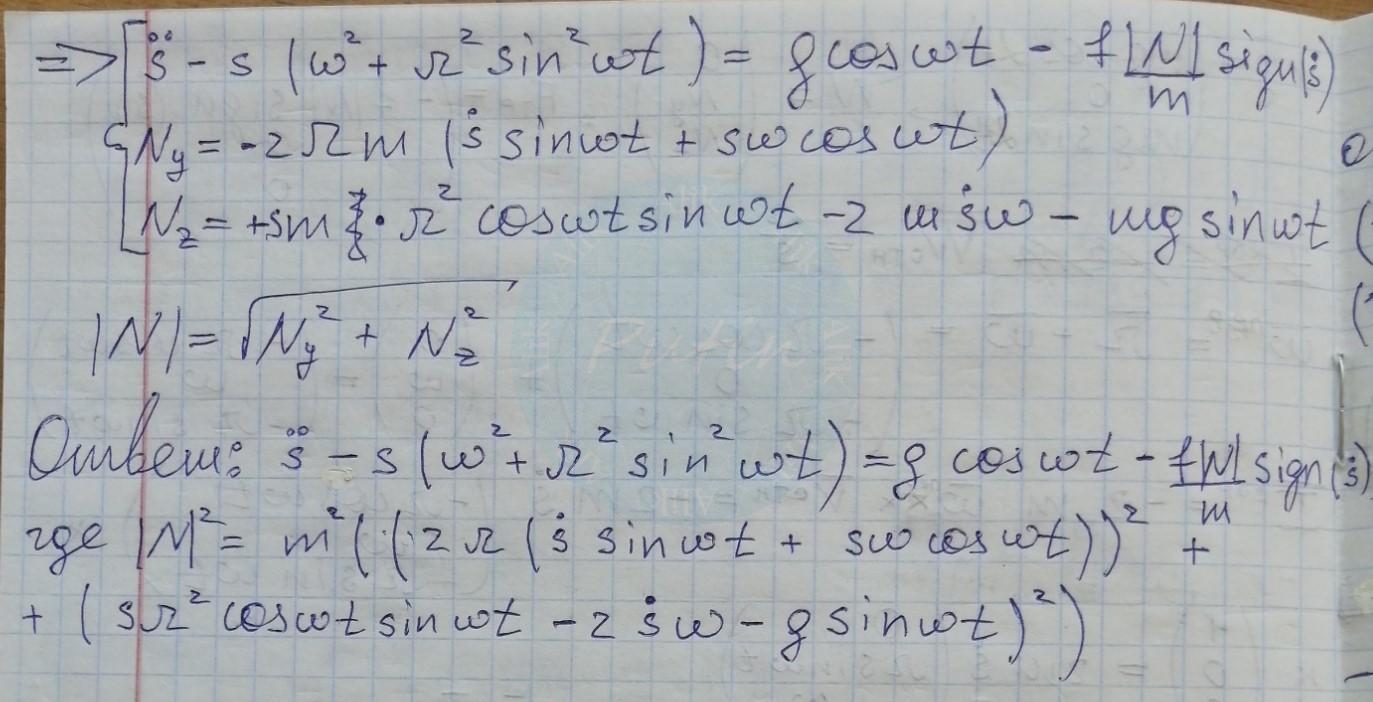 => s̈ - s (ω² + Ω² sin² ωt) = g cos ωt - f|N|/m sign(ṡ)
N_y = -2Ωm (ṡ sin ωt + sω cos ωt)
N_z = +sm · Ω² cos ωt sin ωt - 2 m ṡω - mg sin ωt (
|N| = √(N_y² + N_z²)
Ответ: s̈ - s (ω² + Ω² sin² ωt) = g cos ωt - f|N|/m sign(ṡ)
где |N|² = m² ((2Ω (ṡ sin ωt + sω cos ωt))² +
+ (sΩ² cos ωt sin ωt - 2ṡω - g sin ωt)²)